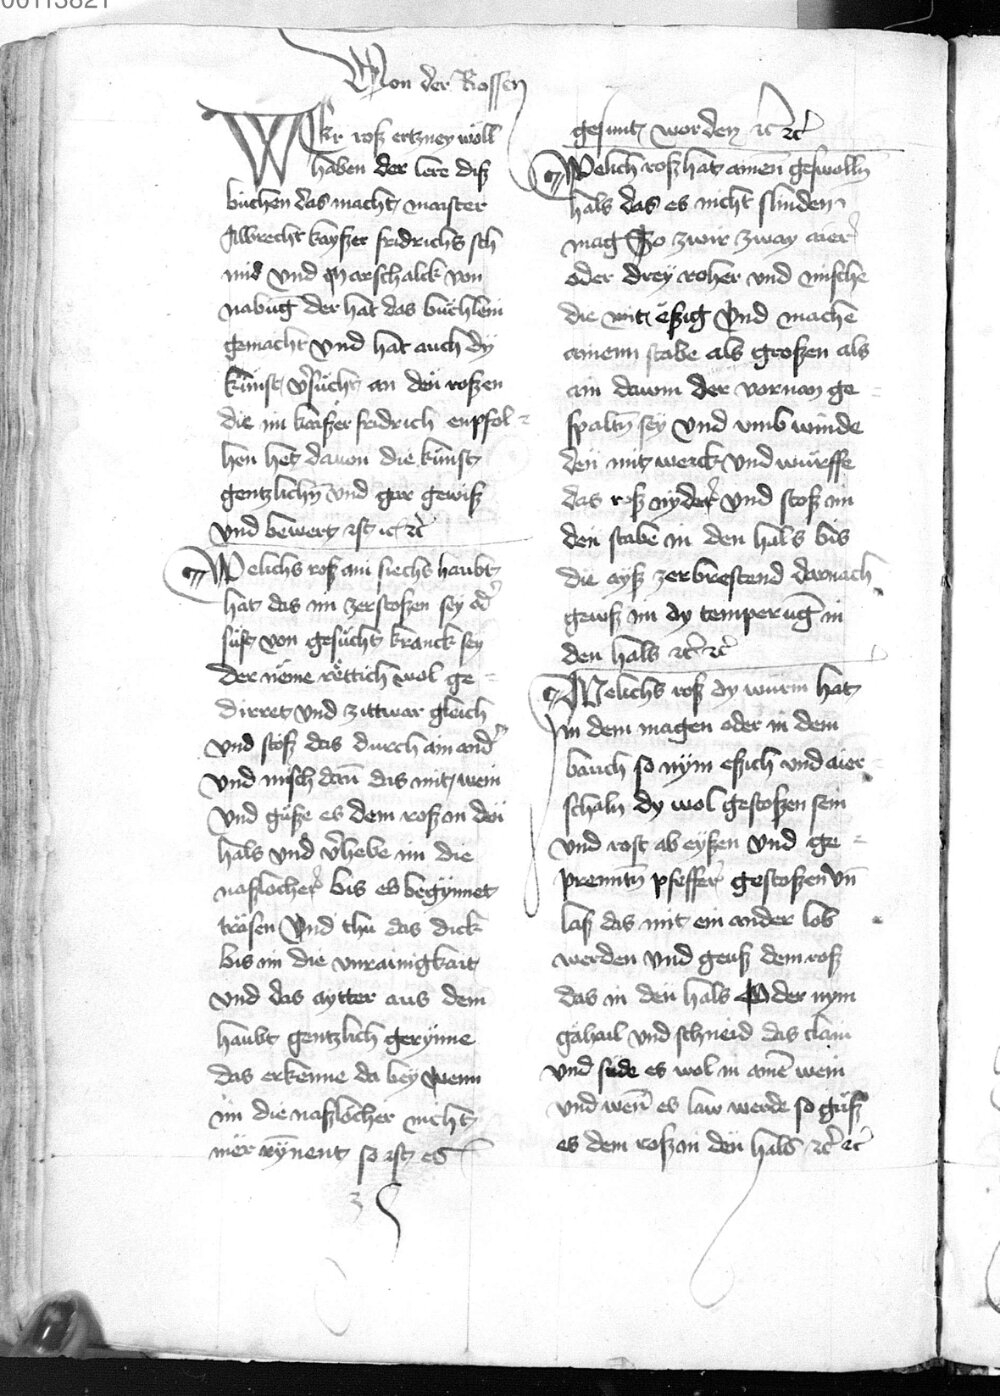 00113821
Von der Rossen
Wer ross ertzney wöll
haben der lere diß
buchen das macht maister
Albrecht kayser fridrichs sch
mid vnd Marschalck von
nabug der hat das buchlein
gemacht vnd hat auch dy
kunst v̓sucht an den roßen
die im kaiser fridrich enpfol-
hen het dauon die kunst
gentzlichn vnd gar gewiß
vnd bewert ist etc etc
Welichs roß ain siechs haubt
hat das im zerstoßen sey od̓
sust von gesucht kranck sey
der neme rettich wol ge-
dirret vnd zittwar gleich
vnd stoß das durch ain and̓
vnd misch dan̄ das mit wein
vnd guße es dem roß in den
hals vnd v̓hebe im die
naßlocher bis es begynnet
träsen Vnd thu das dick
bis im die vnrainigkait
vnd das aytter aus dem
haubt gentzlich gerynne
das erkenne da bey Wenn
im die naßlöcher nicht
mer rynnent so ist es
gesunt worden etc etc
Welich roß hat ainen geswolln
hals das es nicht slinden
mag So zwir zway aier
oder drey roher vnd mische
die mit eßig Vnd mache
ainenn stabe als großen als
ain dawm der vornan ge-
spaltn sey Vnd vmb winde
den mit werck Vnd wurffe
das roß nyder Vnd stoß im
den stabe in den hals bis
die ayß zerbrestend darnach
gewß im dy temperuḡ in
den hals etc etc
Welichs roß dy wurm hat
In dem magen oder in dem
bauch so nym eßich vnd aier
schaln dy wol gestoßen sein
vnd rost ab eyßen Vnd ge-
prenntn pfeffer gestoßen vn̄
laß das mit ein ander lob
werden vnd geuß dem roß
das in den hals Oder nym
gahail vnd schneid das clain
vnd sude es wol in aine̅ wein
vnd wen̄ es law werde so guß
es dem roß in den hals etc etc
3